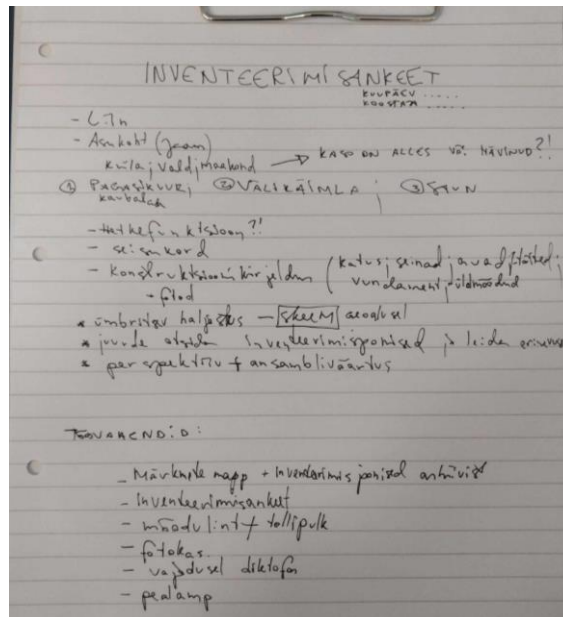 INVENTEERIMISANKEET
KUUPÄEV .....
KOOSTAJA .....
- Asukoht (jaam)
küla, vald, maakond → KAS ON ALLES või HÄVINUD?!
① PAGASIKUUR, ② VÄLIKÄIMLA, ③ SAUN
- funktsioon?!
- seisukord
- konstruktsiooni kirjeldus (katus, seinad, avad,
vundament, üldmõõdud
- fotod
* ümbritsev haljastus - SKEEM asendusel
* juurde otsida inventeerimisjoonised ja leida erinevus
* perspektiiv + ansambliväärtus
TÖÖVAHENDID:
- Märkmete mapp + inventeerimisjoonised arhiivist
- inventeerimisankeet
- mõõdulint + tollipulk
- fotokas
- vajadusel diktofon
- pealamp